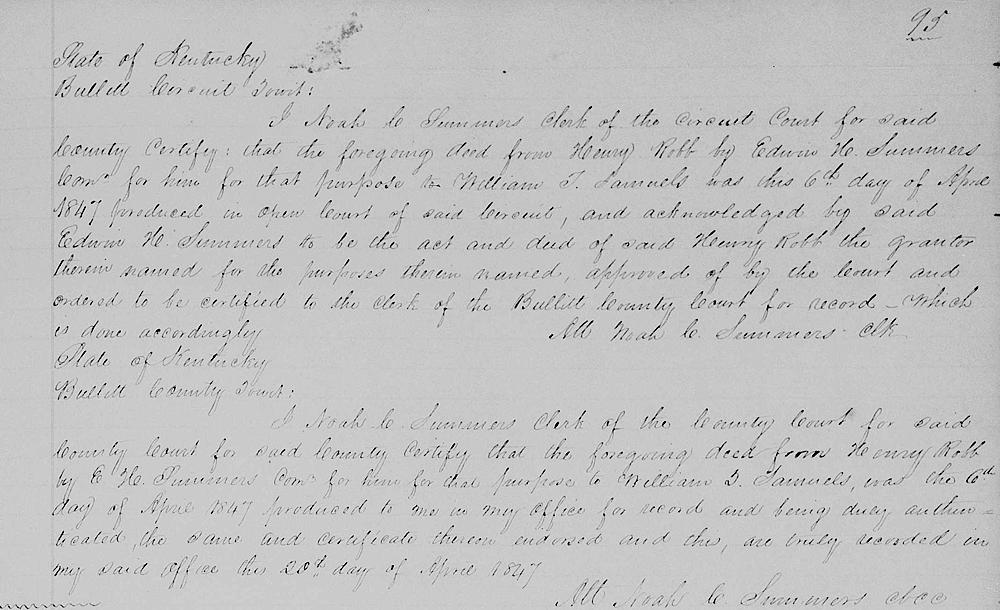 95
State of Kentucky
Bullitt Circuit Towit:
I Noah C Summers Clerk of the Circuit Court for said
County Certify: that the foregoing deed from Henry Robb by Edwin H. Summers
Comr for him for that purpose to William T. Samuels was this 6th day of April
1847 produced in open Court of said Circuit, and acknowledged by said
Edwin H. Summers to be the act and deed of said Henry Robb the grantor
therein named for the purposes therein named, approved of by the Court and
ordered to be certified to the Clerk of the Bullitt County Court for record – Which
is done accordingly Att Noah C. Summers clk
State of Kentucky
Bullitt County Towit:
I Noah C. Summers Clerk of the County Court for said
County Court for said County Certify that the foregoing deed from Henry Robb
by E H. Summers Comr for him for that purpose to William T. Samuels, was the 6th
day of April 1847 produced to me in my office for record and being duly authen=
ticated, the same and certificate thereon endorsed and this, are truly recorded in
my said office this 20th day of April 1847
Att Noah C. Summers cbcc